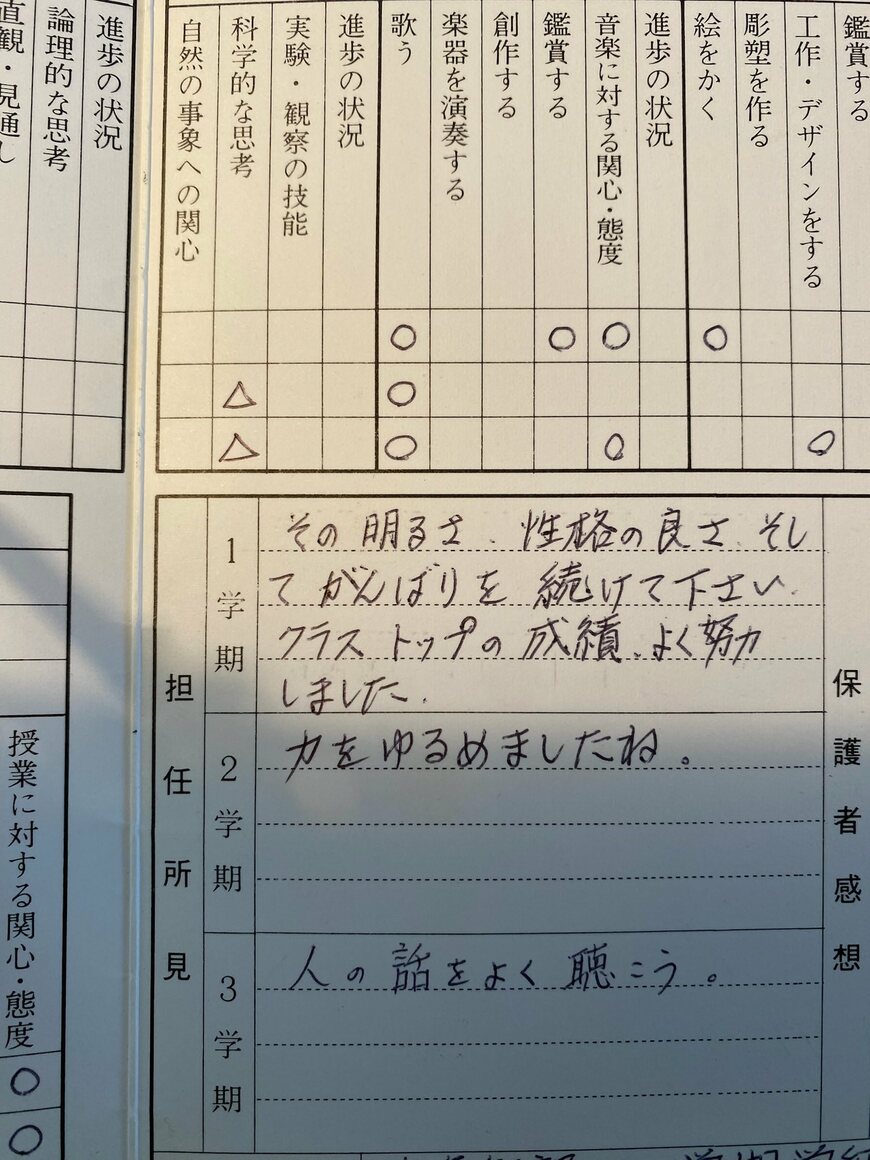 直観・見通し
論理的な思考
進歩の状況
自然の事象への関心
科学的な思考
実験・観察の技能
進歩の状況
歌う
楽器を演奏する
創作する
鑑賞する
音楽に対する関心・態度
進歩の状況
絵をかく
彫塑を作る
工作・デザインをする
鑑賞する
○ ○ ○ ○
△ ○
△ ○ ○ ○
授業に対する関心・態度
○
○
担任所見
1学期
その明るさ、性格の良さ、そし
てがんばりを続けて下さい。
クラストップの成績、よく努力
しました。
2学期
力をゆるめましたね。
3学期
人の話をよく聴こう。
保護者感想